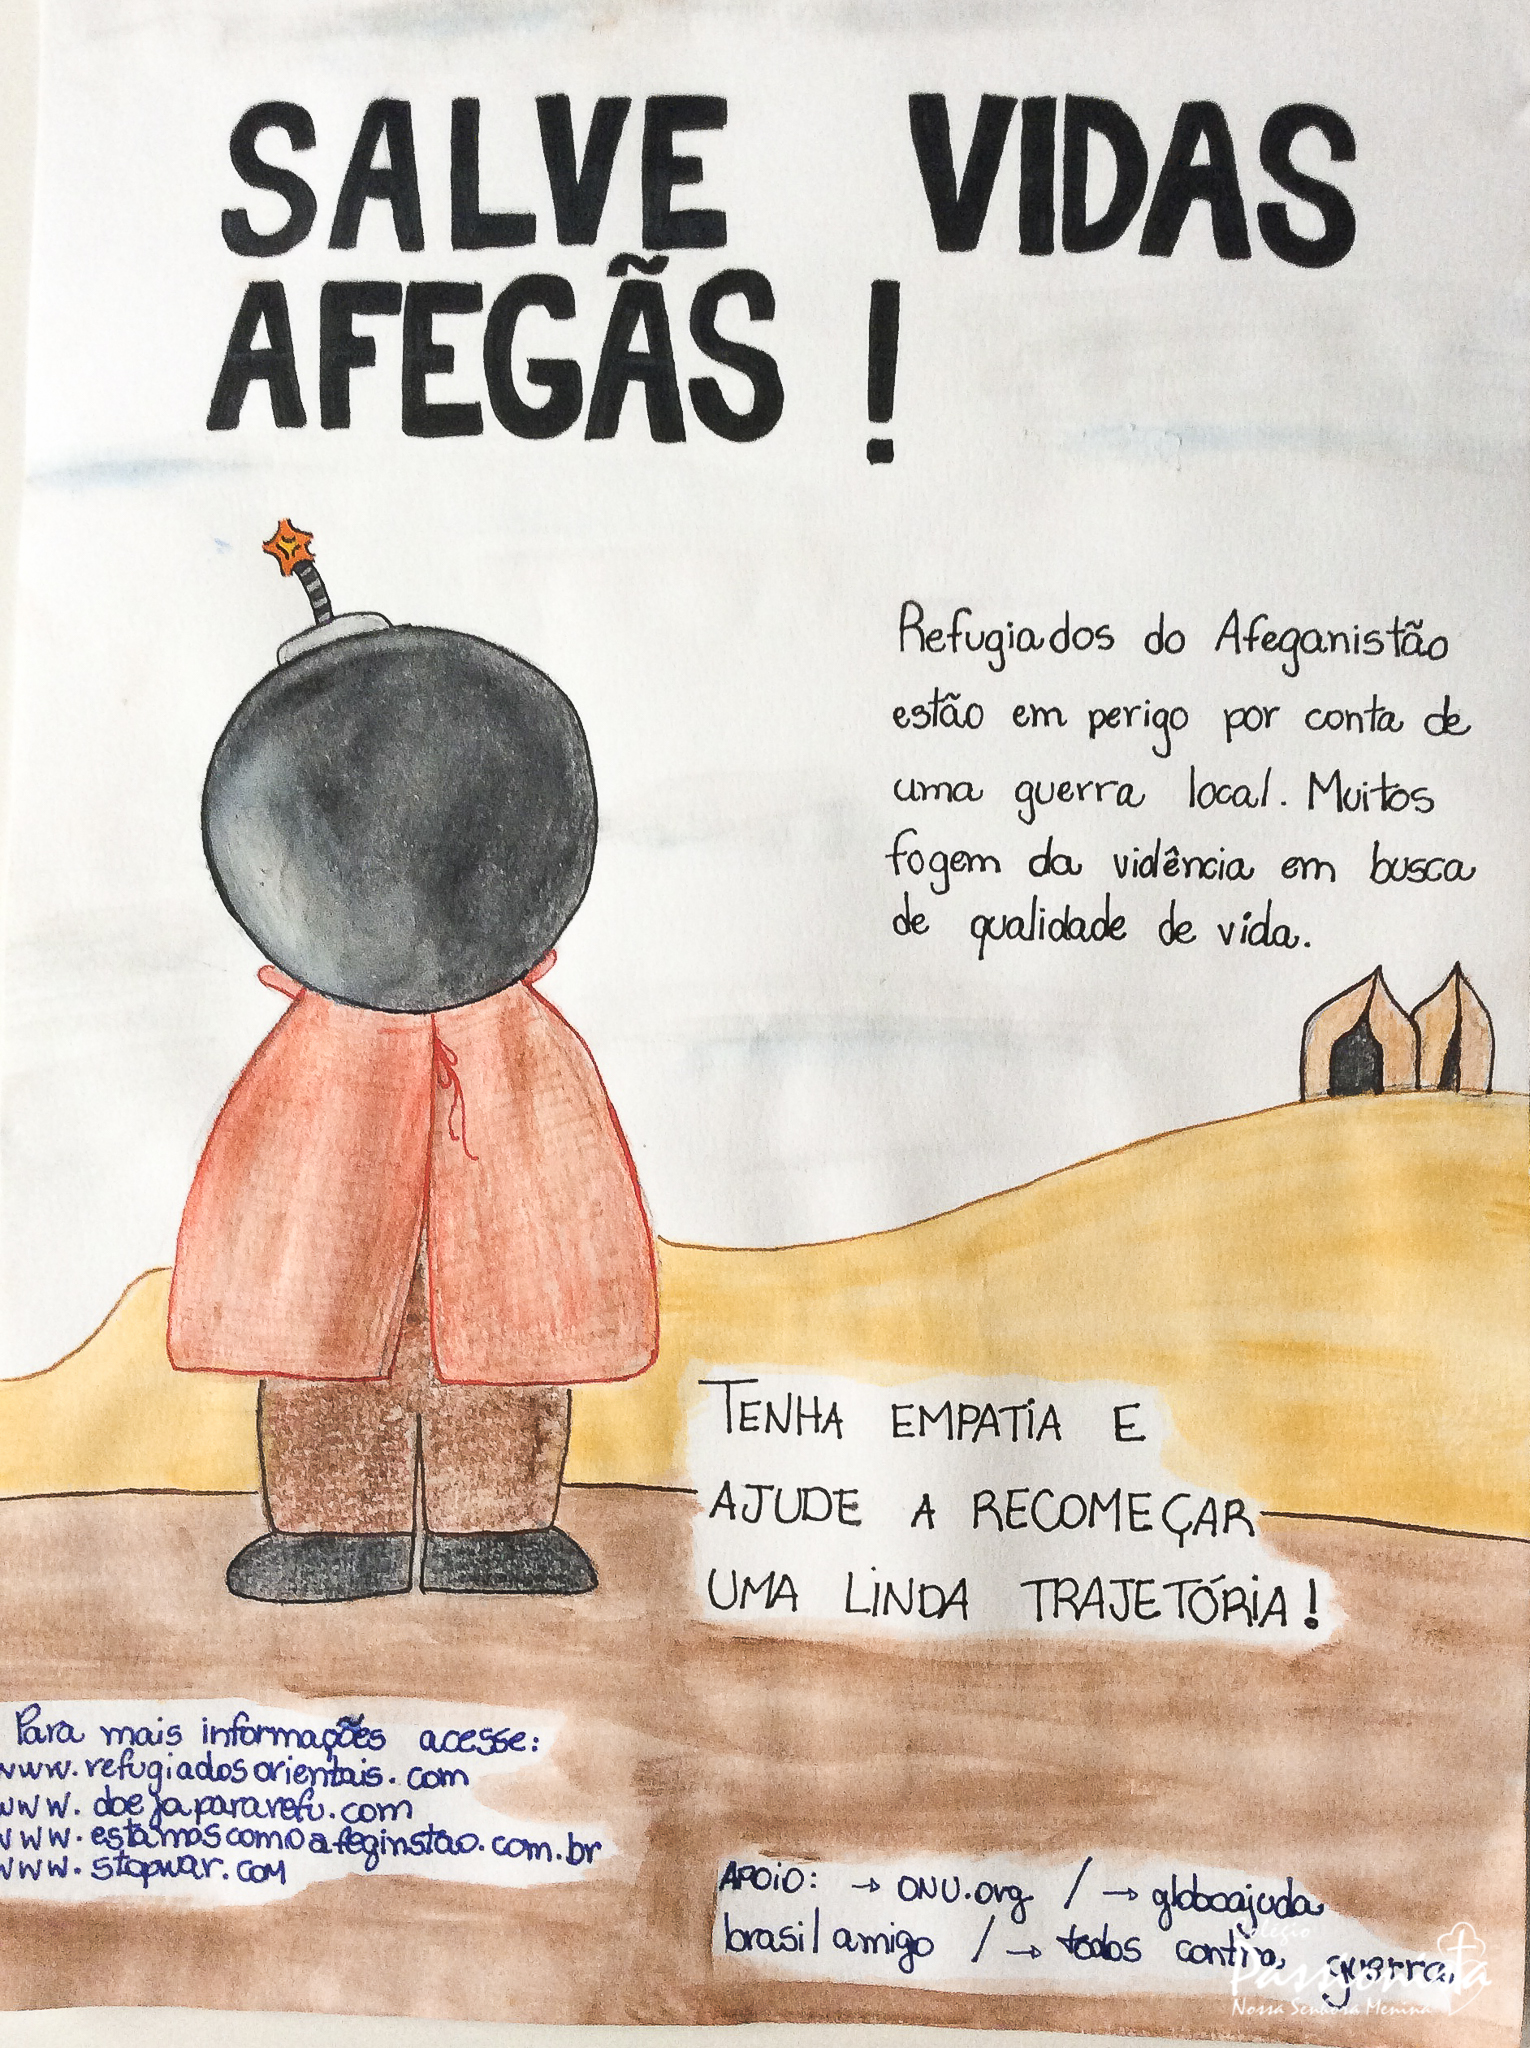 SALVE VIDAS
AFEGÃS !
Refugiados do Afeganistão
estão em perigo por conta de
uma guerra local. Muitos
fogem da violência em busca
de qualidade de vida.
TENHA EMPATIA E
AJUDE A RECOMEÇAR
UMA LINDA TRAJETÓRIA!
Para mais informações acesse:
www.refugiadosorientais.com
www.doejapararefu.com
www.estamoscomoafeginstão.com.br
www.stopwar.com
APOIO: → ONU.org / → globoajuda
brasil amigo / → todos contra guerra
Colégio
Passionista
Nossa Senhora Menina